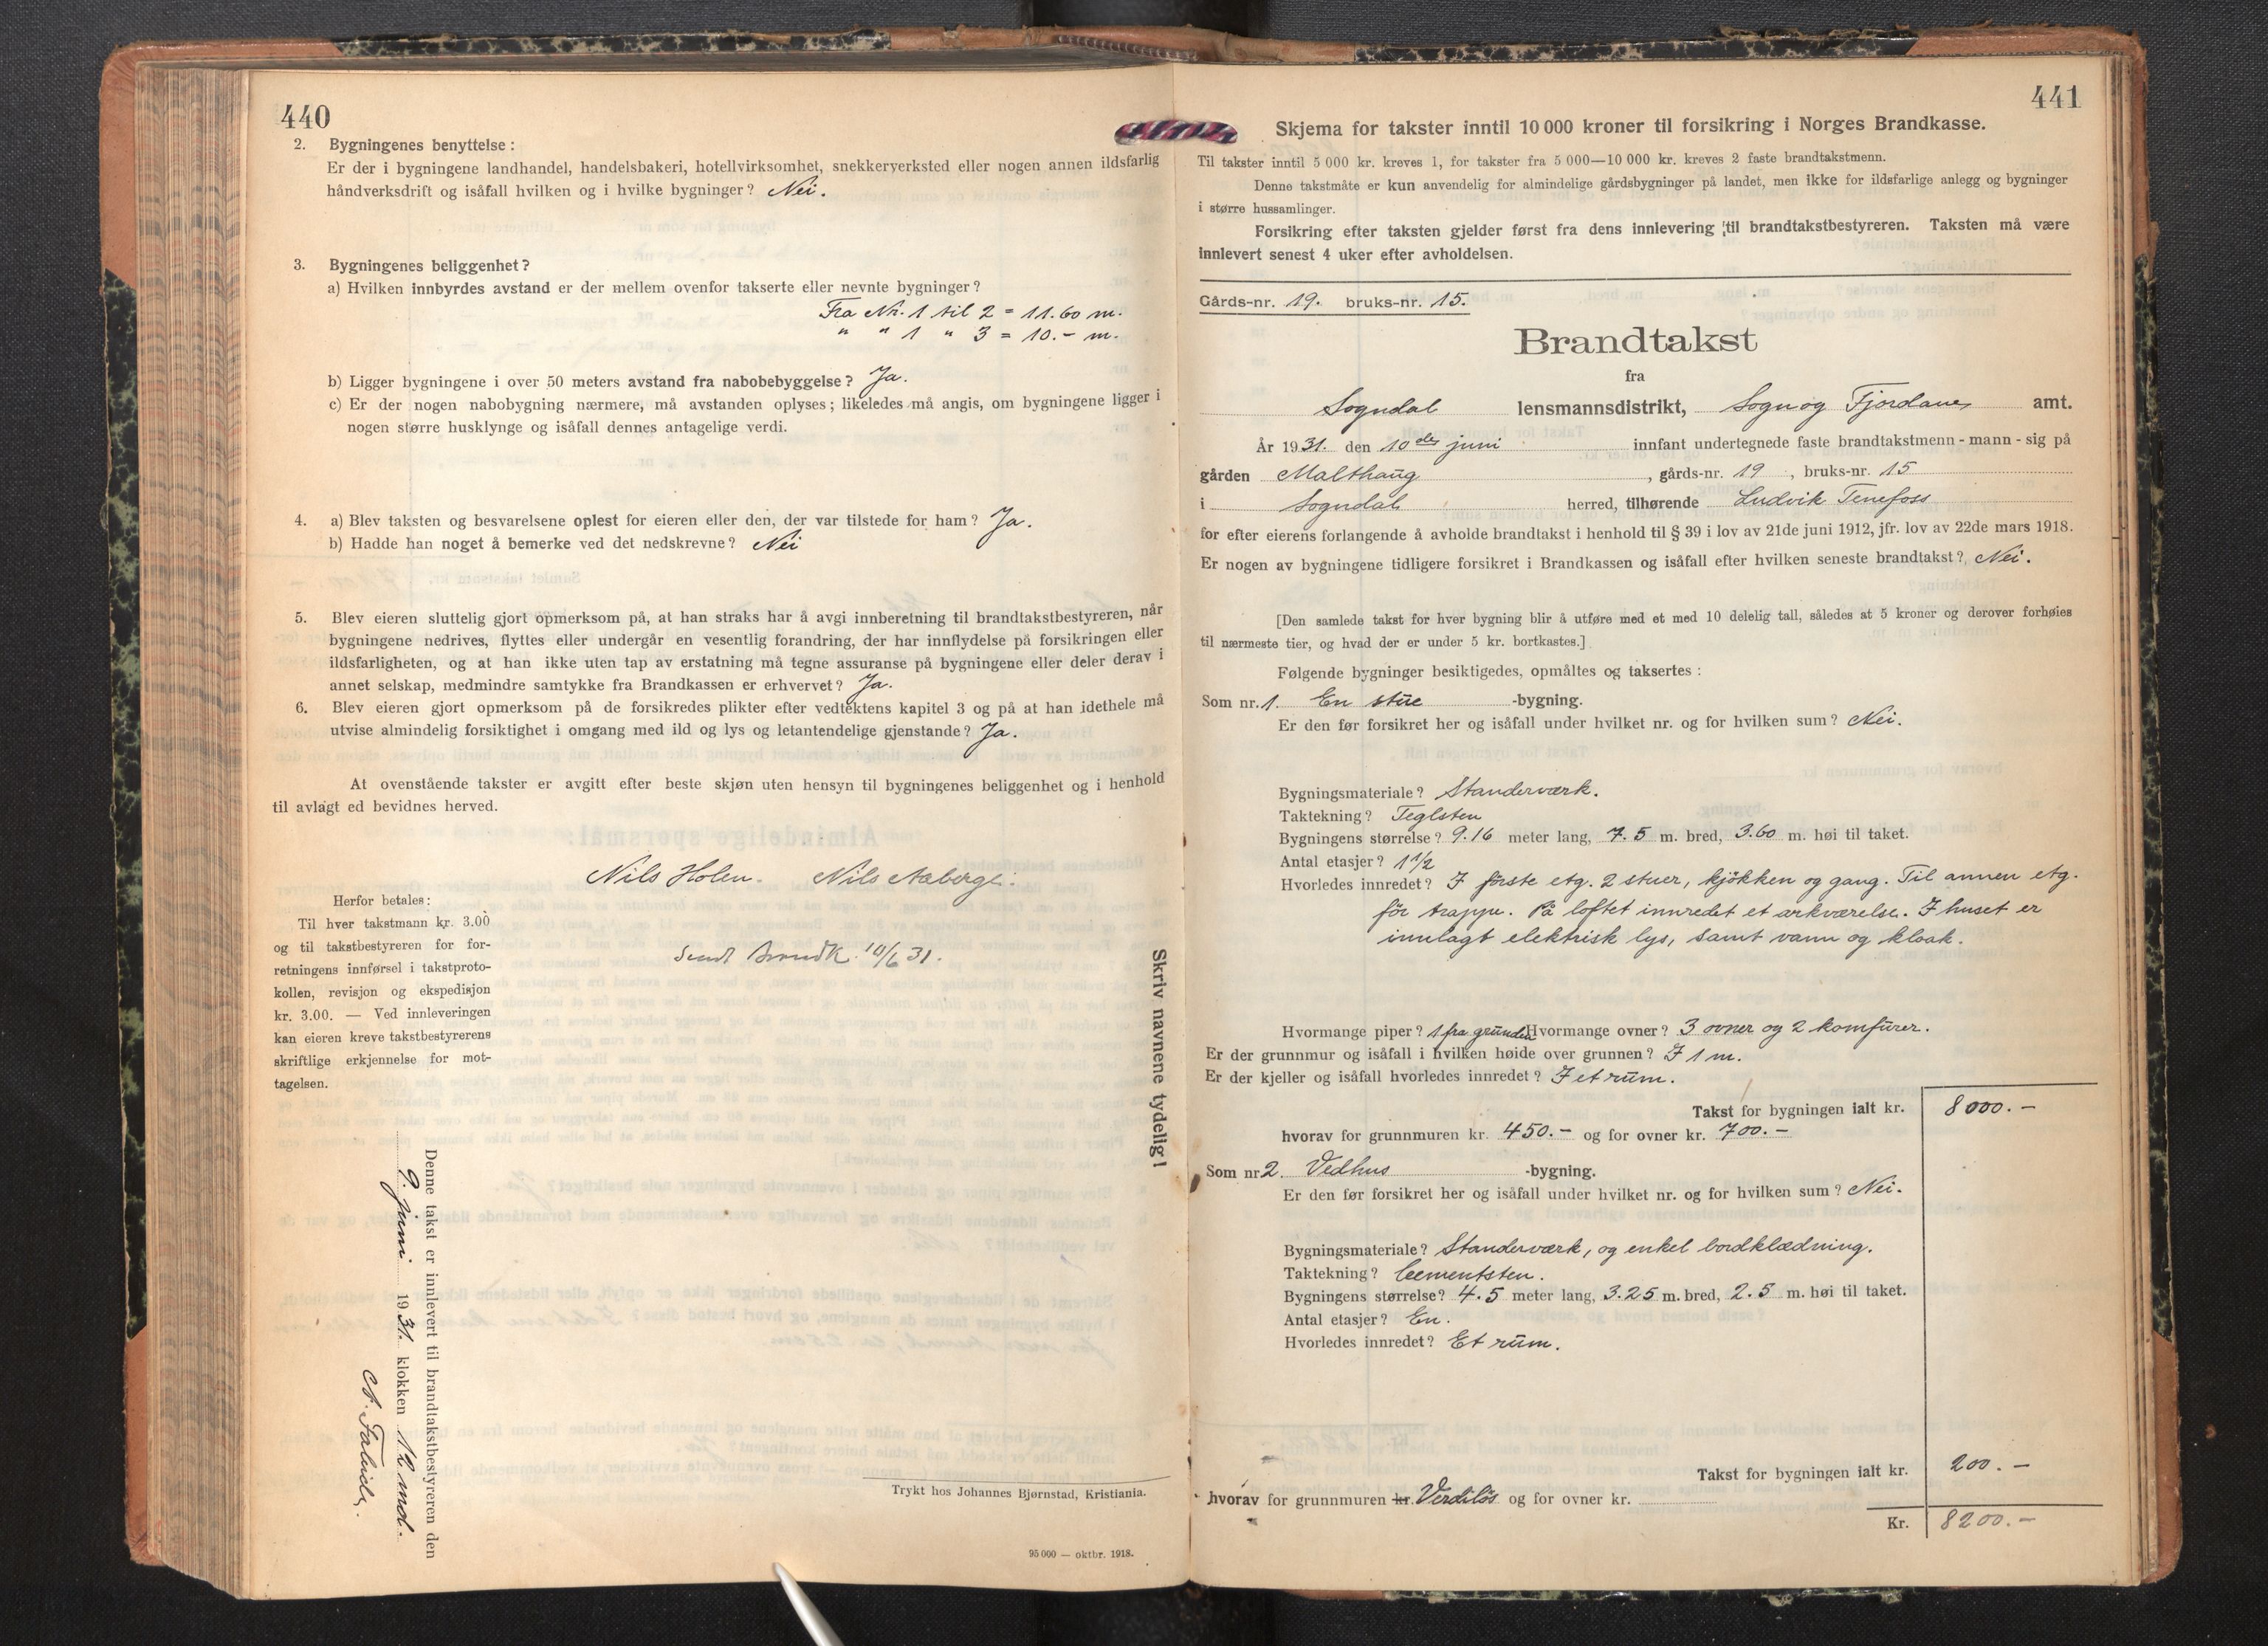 440
2. Bygningenes benyttelse:
Er der i bygningene landhandel, handelsbakeri, hotellvirksomhet, snekkerverksted eller nogen annen ildsfarlig
håndverksdrift og isåfall hvilken og i hvilke bygninger? Nei.
3. Bygningenes beliggenhet?
a) Hvilken innbyrdes avstand er der mellem ovenfor takserte eller nevnte bygninger?
Fra Nr. 1 til 2 = 11.60 m.
" " 1 " 3 = 10.- m.
b) Ligger bygningene i over 50 meters avstand fra nabobebyggelse? Ja.
c) Er der nogen nabobygning nærmere, må avstanden oplyses; likeledes må angis, om bygningene ligger i
nogen større husklynge og isåfall dennes antagelige verdi.
4. a) Blev taksten og besvarelsene oplest for eieren eller den, der var tilstede for ham? Ja.
b) Hadde han noget å bemerke ved det nedskrevne? Nei
5. Blev eieren sluttelig gjort opmerksom på, at han straks har å avgi innberetning til brandtakstbestyreren, når
bygningene nedrives, flyttes eller undergår en vesentlig forandring, der har innflydelse på forsikringen eller
ildsfarligheten, og at han ikke uten tap av erstatning må tegne assuranse på bygningene eller deler derav i
annet selskap, medmindre samtykke fra Brandkassen er erhvervet? Ja.
6. Blev eieren gjort opmerksom på de forsikredes plikter efter vedtektens kapitel 3 og på at han idethele må
utvise almindelig forsiktighet i omgang med ild og lys og letantendelige gjenstande? Ja.
At ovenstående takster er avgitt efter beste skjøn uten hensyn til bygningenes beliggenhet og i henhold
til avlagt ed bevidnes herved.
Nils Holen. Nils Aaberge.
Sendt Brandk. 10/6 31.
Herfor betales:
Til hver takstmann kr. 3.00
og til takstbestyreren for for-
retningens innførsel i takstproto-
kollen, revisjon og ekspedisjon
kr. 3.00. — Ved innleveringen
kan eieren kreve takstbestyrerens
skriftlige erkjennelse for mot-
tagelsen.
Denne takst er innlevert til brandtakstbestyreren den
9. juni 1931. klokken 12 md.
Skriv navnene tydelig!
Trykt hos Johannes Bjørnstad, Kristiania.
95 000 — oktbr. 1918.
441
Skjema for takster inntil 10 000 kroner til forsikring i Norges Brandkasse.
Til takster inntil 5 000 kr. kreves 1, for takster fra 5 000—10 000 kr. kreves 2 faste brandtakstmenn.
Denne takstmåte er kun anvendelig for almindelige gårdsbygninger på landet, men ikke for ildsfarlige anlegg og bygninger
i større hussamlinger.
Forsikring efter taksten gjelder først fra dens innlevering til brandtakstbestyreren. Taksten må være
innlevert senest 4 uker efter avholdelsen.
Gårds-nr. 19. bruks-nr. 15.
Brandtakst
fra
Sogndal lensmannsdistrikt, Sogn og Fjordane amt.
År 1931. den 10de juni innfant undertegnede faste brandtakstmenn - mann - sig på
gården Malthaug, gårds-nr. 19, bruks-nr. 15
i Sogndal herred, tilhørende Ludvik Tenefoss
for efter eierens forlangende å avholde brandtakst i henhold til § 39 i lov av 21de juni 1912, jfr. lov av 22de mars 1918.
Er nogen av bygningene tidligere forsikret i Brandkassen og isåfall efter hvilken seneste brandtakst? Nei.
[Den samlede takst for hver bygning blir å utføre med et med 10 delelig tall, således at 5 kroner og derover forhøies
til nærmeste tier, og hvad der er under 5 kr. bortkastes.]
Følgende bygninger besiktigedes, opmåltes og taksertes:
Som nr. 1. En stue -bygning.
Er den før forsikret her og isåfall under hvilket nr. og for hvilken sum? Nei.
Bygningsmateriale? Standerværk.
Taktekning? Teglsten
Bygningens størrelse? 9.16 meter lang, 7.5 m. bred, 3.60 m. høi til taket.
Antal etasjer? 1 1/2
Hvorledes innredet? I förste etg. 2 stuer, kjökken og gang. Til annen etg.
för trappe. På loftet innredet et arkværelse. I huset er
innlagt elektrisk lys, samt vann og kloak.
Hvormange piper? 1 fra grunden Hvormange ovner? 3 ovner og 2 komfurer.
Er der grunnmur og isåfall i hvilken høide over grunnen? I 1 m.
Er der kjeller og isåfall hvorledes innredet? I et rum.
Takst for bygningen ialt kr. 8000.-
hvorav for grunnmuren kr. 450.- og for ovner kr. 700.-
Som nr 2. Vedhus -bygning.
Er den før forsikret her og isåfall under hvilket nr. og for hvilken sum? Nei.
Bygningsmateriale? Standerværk, og enkel bordklædning.
Taktekning? Cementsten.
Bygningens størrelse? 4.5 meter lang, 3.25 m. bred, 2.5 m. høi til taket.
Antal etasjer? En.
Hvorledes innredet? Et rum.
Takst for bygningen ialt kr. 200.-
hvorav for grunnmuren kr. Verdilös og for ovner kr.
Kr. 8200.-